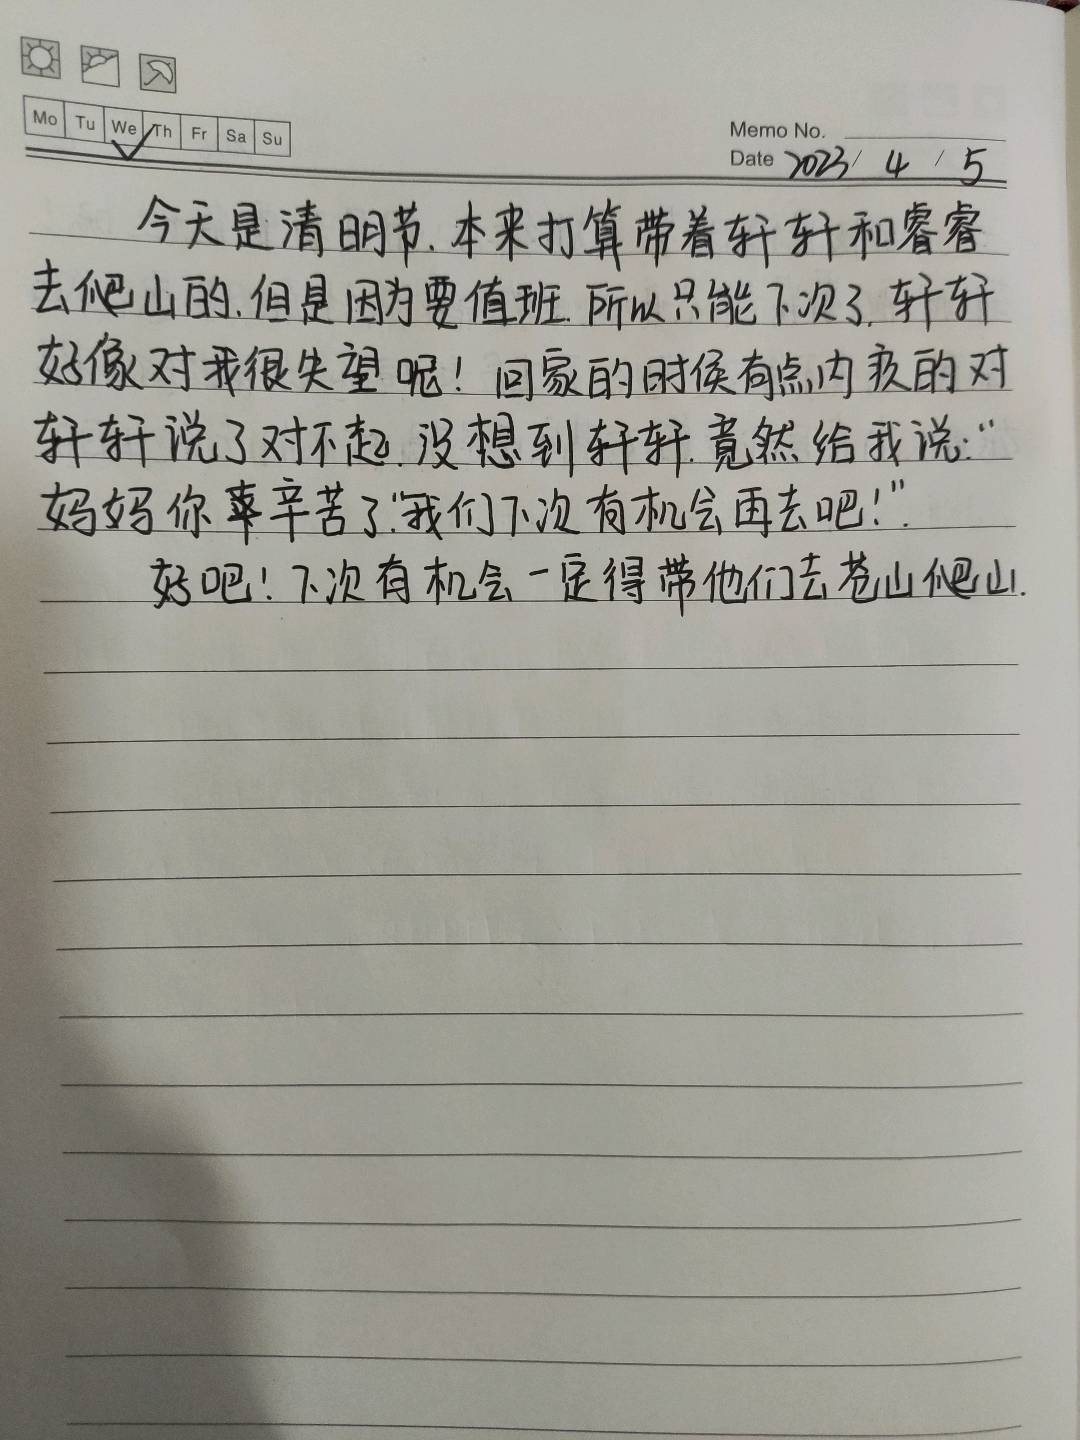 Mo Tu We Th Fr Sa Su
Memo No.
Date 2023/ 4 / 5
今天是清明节.本来打算带着轩轩和睿睿
去爬山的.但是因为要值班.所以只能下次了.轩轩
好像对我很失望呢！回家的时候有点内疚的对
轩轩说了对不起.没想到轩轩.竟然给我说:“
妈妈你辛苦了.“我们下次有机会再去吧！”.
好吧！下次有机会一定得带他们去苍山爬山.